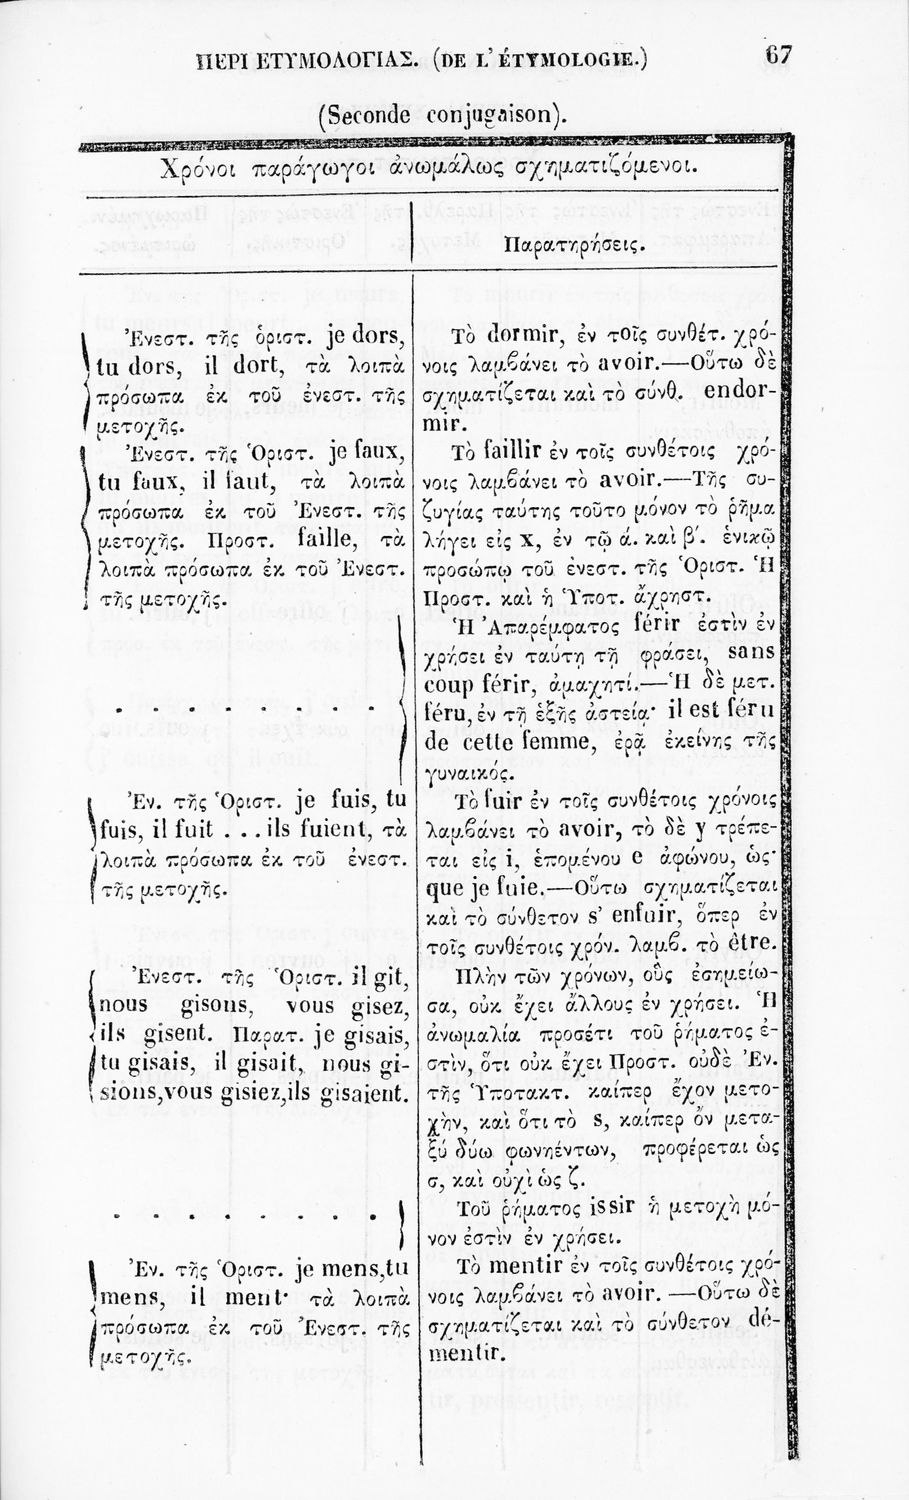 ΠΕΡΙ ΕΤΥΜΟΛΟΓΙΑΣ. (DE L'ÉTYMOLOGIE.) 67
(Seconde conjugaison).
Χρόνοι παράγωγοι ἀνωμάλως σχηματιζόμενοι.
Παρατηρήσεις.
Ἐνεστ. τῆς ὁριστ. je dors,
tu dors, il dort, τὰ λοιπὰ
πρόσωπα ἐκ τοῦ ἐνεστ. τῆς
μετοχῆς.
Ἐνεστ. τῆς Ὁριστ. je faux,
tu faux, il faut, τὰ λοιπὰ
πρόσωπα ἐκ τοῦ Ἐνεστ. τῆς
μετοχῆς. Προστ. faille, τὰ
λοιπὰ πρόσωπα ἐκ τοῦ Ἐνεστ.
τῆς μετοχῆς.
. . . . . . . .
Ἐν. τῆς Ὁριστ. je fuis, tu
fuis, il fuit . . . ils fuient, τὰ
λοιπὰ πρόσωπα ἐκ τοῦ ἐνεστ.
τῆς μετοχῆς.
Ἐνεστ. τῆς Ὁριστ. il git,
nous gisons, vous gisez,
ils gisent. Παρατ. je gisais,
tu gisais, il gisait, nous gi-
sions, vous gisiez, ils gisaient.
. . . . . . . .
Ἐν. τῆς Ὁριστ. je mens, tu
mens, il ment· τὰ λοιπὰ
πρόσωπα ἐκ τοῦ Ἐνεστ. τῆς
μετοχῆς.
Τὸ dormir, ἐν τοῖς συνθέτ. χρό-
νοις λαμβάνει τὸ avoir.—Οὕτω δὲ
σχηματίζεται καὶ τὸ σύνθ. endor-
mir.
Τὸ faillir ἐν τοῖς συνθέτοις χρό-
νοις λαμβάνει τὸ avoir.—Τῆς συ-
ζυγίας ταύτης τοῦτο μόνον τὸ ῥῆμα
λήγει εἰς x, ἐν τῷ ά. καὶ β΄. ἑνικῷ
προσώπῳ τοῦ ἐνεστ. τῆς Ὁριστ. Ἡ
Προστ. καὶ ἡ Ὑποτ. ἄχρηστ.
Ἡ Ἀπαρέμφατος férir ἐστὶν ἐν
χρήσει ἐν ταύτῃ τῇ φράσει, sans
coup férir, ἀμαχητί.—Ἡ δὲ μετ.
féru, ἐν τῇ ἑξῆς ἀστείᾳ· il est féru
de cette femme, ἐρᾷ ἐκείνης τῆς
γυναικός.
Τὸ fuir ἐν τοῖς συνθέτοις χρόνοις
λαμβάνει τὸ avoir, τὸ δὲ y τρέπε-
ται εἰς i, ἑπομένου e ἀφώνου, ὡς·
que je fuie.—Οὕτω σχηματίζεται
καὶ τὸ σύνθετον s' enfuir, ὅπερ ἐν
τοῖς συνθέτοις χρόν. λαμβ. τὸ être.
Πλὴν τῶν χρόνων, οὓς ἐσημείω-
σα, οὐκ ἔχει ἄλλους ἐν χρήσει. Ἡ
ἀνωμαλία προσέτι τοῦ ῥήματος ἐ-
στὶν, ὅτι οὐκ ἔχει Προστ. οὐδὲ Ἐν.
τῆς Ὑποτακτ. καίπερ ἔχον μετο-
χὴν, καὶ ὅτι τὸ s, καίπερ ὂν μετα-
ξύ δύω φωνηέντων, προφέρεται ὡς
σ, καὶ οὐχὶ ὡς ζ.
Τοῦ ῥήματος issir ἡ μετοχὴ μό-
νον ἐστὶν ἐν χρήσει.
Τὸ mentir ἐν τοῖς συνθέτοις χρό-
νοις λαμβάνει τὸ avoir. —Οὕτω δὲ
σχηματίζεται καὶ τὸ σύνθετον dé-
mentir.